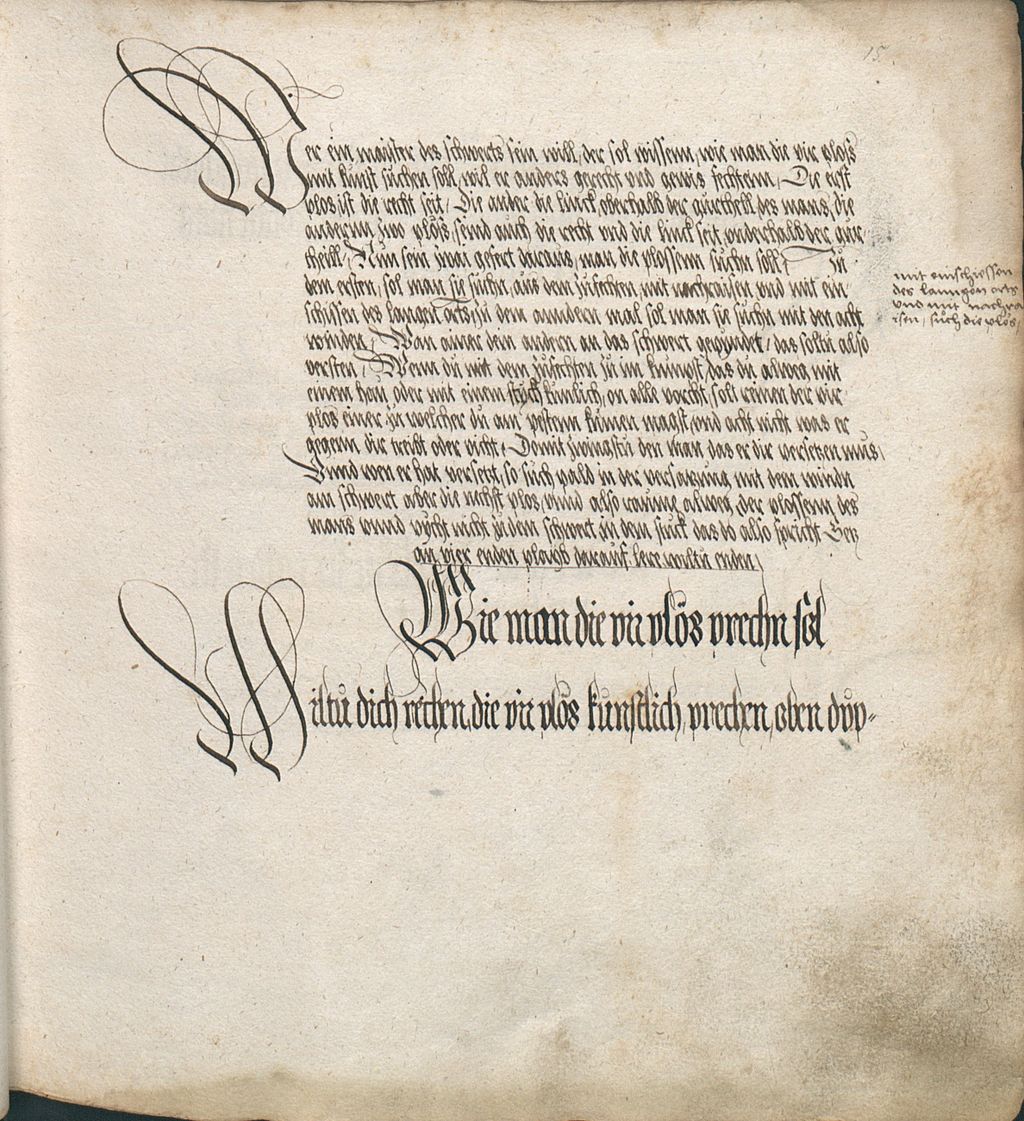 15
Wer ein maister des schwerts sein will, der sol wissenn, wie man die vir plos
mit kunst suchen soll, wil er anders gerecht vnd gewis fechtenn, Die erst
plos ist die recht seit, Die ander die linck, oberhalb der gurthell, des mans, die
andernn zwo plös, seind auch die recht vnd die linck seit, vnderhalb der gur
theill, Nun sein zwai gefert daraus, man die plossenn suchn soll, Zu
dem ersten, sol man sie suchn, aus dem zufechten, mit nachraisen vnd mit ein
schissen des langen orts, zu dem anndern mal sol man sie suchn mit den acht
winden, Wan ainer dem anderen an das schwert gepindet, das soltu also
versten, Wenn du mit dem zufechten zu im kumpst das du alweg mit
einem hau oder mit einem stych kunlich, on alle vorcht, solt reinen der vir
plos einer zu welcher du am pestenn kumen magst, vnd acht nicht was er
gegenn dir treibt oder vicht, Domit zwingstu den man das er dir versetzen mus,
Vnnd wen er hat versetzt, so such pald in der versatzung mit dem windn
am schwert aber die nechst plos, vnnd also raume alweg, der plossenn des
mans vnnd vycht nicht zu dem schwert, in dem stuck das do also spricht Setz
an vier enden pleyb darauf lere wiltu enden
mit einschiessen
des lanngen orts
vnd mit nachra
isen, such die plös,
Wie man die vir plös prechn sol
Wiltu dich rechen, die vir plös kunstlich prechen, oben dup=